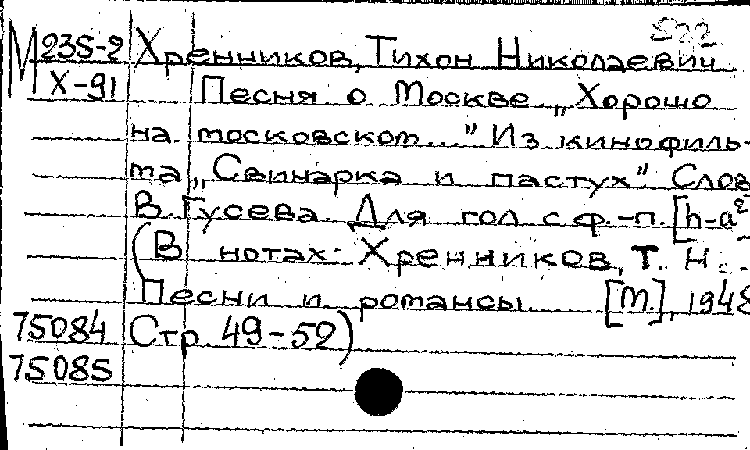 522
М 235-2 Хренников, Тихон Николаевич
Х-91 Песня о Москве „Хорошо
на московском..." Из кинофиль-
ма „Свинарка и пастух". Слов
В. Гусева. Для гол с ф.-п. [h-a²
(В нотах: Хренников, Т. Н.
Песни и романсы [М.], 1948
75084 Стр 49-52)
75085